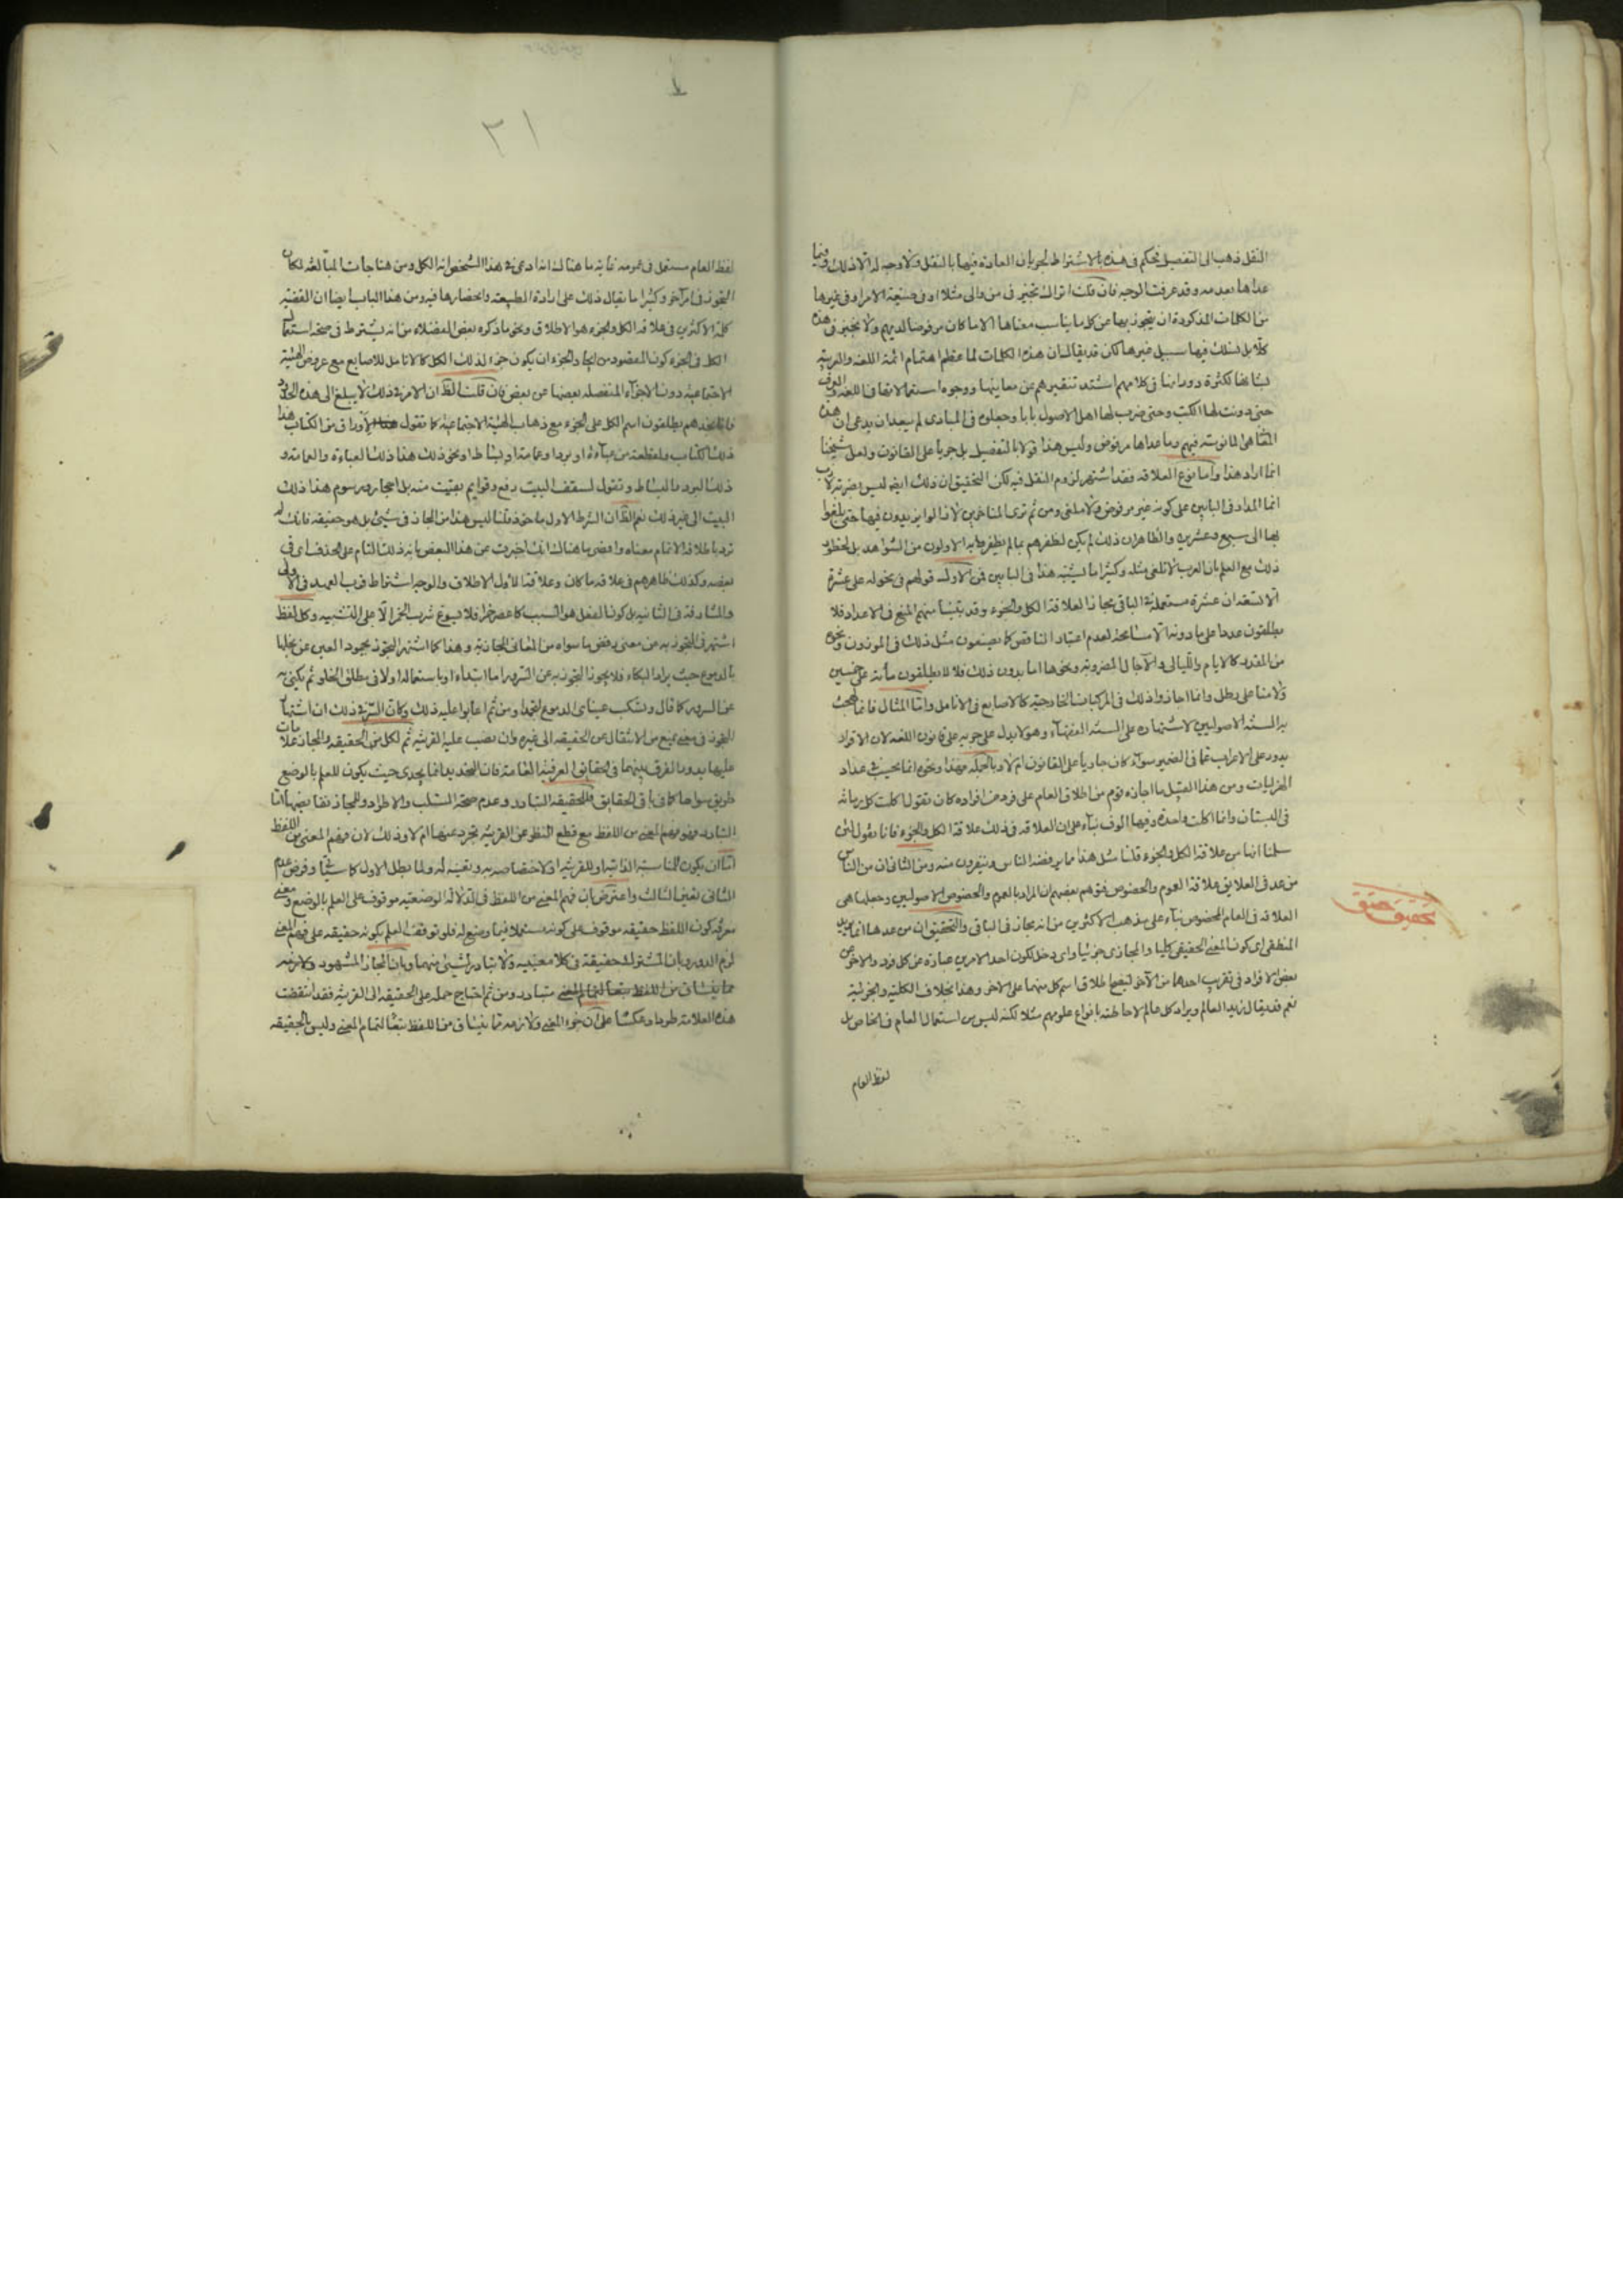 النقل ذهب الى التفصيل فحكم في هذه بالاشتراط لجريان العادة فيها بالنقل ولا وجه له الا ذلك وفيما
عداها بعدمه وقد عرفت الوجه فان قلت اتراك تجيز في من والى مثلا او في صيغة الامر او في غيرها
من الكلمات المذكورة ان يتجوز بها عن كل ما يناسب معناها الا ما كان مرفوضا لديهم ولا تجيز في هذه
كلا بل نسلك فيها سبيل غيرها لكن قد يقال ان هذه الكلمات لما عظم اهتمام ائمة اللغة والعربية
بشانها لكثرة دورانها في كلامهم اشتد تنقيرهم عن معانيها ووجوه استعمالاتها في اللغة والعرف
حتى دونت لها الكتب وحتى ضرب لها اهل الاصول بابا وجعلوه في المبادي لم يبعد ان يدعى ان هذه
هي المانوسة فيهم وما عداها مرفوض وليس هذا قولا بالتفصيل بل جريا على القانون ولعل شيخنا
انما اراد هذا واما نوع العلاقة فقد اشتهر لزوم النقل فيه لكن التحقيق ان ذلك ايضا ليس بضربة لازب
انما المدار في البابين على كونه غير مرفوض ولا ملغى ومن ثم ترى المتاخرين لا زالوا يزيدون فيها حتى بلغوا
بها الى سبع وعشرين والظاهر ان ذلك لم يكن لظفرهم بما لم يظفر به الاولون من الشواهد بل لحظوا
ذلك مع العلم بان العرب لا تلغي مثله وكثيرا ما يشتبه هذا في البابين فمن الاول قولهم في نحو له علي عشرة
الا ثلثة ان عشرة مستعملة في الباقي مجازا لعلاقة الكل والجزء وقد يتبين منهم المنع في الاعداد فلا
يطلقون عددا على ما دونه الا مسامحة لعدم اعتبار الناقص كما يصنعون مثل ذلك في الموزون ونحوه
من المقدر كالايام والليالي والآجال المضروبة ونحوها اما بدون ذلك فلا فلا يطلقون مأئة على خمسين
ولا منا على رطل وانما اجازوا ذلك في المركبات الخارجية كالاصابع في الانامل واما المثال فانما لهجت
به السنة الاصوليين لاشتهاره على السنة الفقهاء وهو لا يدل على جريه على قانون اللغة لان الاقرار
يدور على الاعراب عما في الضمير سواء كان جاريا على القانون ام لا وبالجملة فهذا ونحوه انما يحسب في عداد
الهزليات ومن هذا القبيل ما اجازه قوم من اطلاق العام على فرد من افراده كان تقول اكلت كل رمانة
في البستان وانما اكلت واحدة وفيها الوف بناء على ان العلاقة في ذلك علاقة الكل والجزء فانا نقول لئن
سلمنا انها من علاقة الكل والجزء قلنا مثل هذا مما يرفضه الناس وينفرون منه ومن الثاني ان من الناس
من عد في العلايق علاقة العموم والخصوص فتوهم بعضهم ان المراد بالعموم والخصوص الاصوليين وجعلها هي
العلاقة في العام المخصوص بناء على مذهب الاكثرين من انه مجاز في الباقي والتحقيق ان من عدها انما يريد
المنطقي اي كون المعنى الحقيقي كليا والمجازي جزئيا واي دخل لكون احد الامرين عبارة عن كل فرد والآخر عن
بعض الافراد في تقريب احدهما من الآخر ليصح اطلاق اسم كل منهما على الآخر وهذا بخلاف الكلية والجزئية
نعم قد يقال زيد العالم ويراد كل عالم لاحاطته بانواع علومهم مثلا لكنه ليس من استعمال العام في الخاص بل
لفظ العام
تحقيق حقيق
٣١
لفظ العام مستعمل في عمومه غاية ما هناك انه ادعى في هذا الشخص انه الكل ومن هنا جات المبالغة لكان
التجوز في امر آخر وكثيرا ما يقال ذلك على ارادة الطبيعة وانحصارها فيه ومن هذا الباب ايضا ان القضية
كلمة الاكثرين في علاقة الكل والجزء هو الاطلاق ونحو ما ذكره بعض الفضلاء من انه يشترط في صحة استعمال
الكل في الجزء كون المقصود من الجزء ان يكون جزء لذلك الكل كالانامل للاصابع مع عروض الهيئة
الاجتماعية دون الاجزاء المنفصلة بعضها عن بعض فان قلت الظ ان الامر في ذلك لا يبلغ الى هذه الحدود
فانا نجدهم يطلقون اسم الكل على الجزء مع ذهاب الهيئة الاجتماعية كما تقول لاوراق من الكتاب هذا
ذلك الكتاب ولقطعة من عباءة او برد او عمامة او بساط او نحو ذلك هذا ذلك العباءة والعمامة و
ذلك البرد والبساط وتقول لسقف البيت رفع وقوايم بقيت منه بل احجار ورسوم هذا ذلك
البيت الى غير ذلك نعم الظ ان الشرط الاول ماخوذ قلنا ليس هذا من المجاز في شيئ بل هو حقيقة فانك لم
ترد باطلاقه الا تمام معناه واقصى ما هناك انك اخبرت عن هذا البعض بانه ذلك التام على الحذف اي في
بعضه وكذلك ظاهرهم في علاقة ما كان وعلاقة الاول الاطلاق والوجه اشتراط قرب العهد في الاولى
والمشارفة في الثانية بل كون الفعل هو السبب كاعصر خمرا فلا يسوغ شرب الخمر الا على التشبيه وكل لفظ
اشتهر في التجوز به عن معنى رفض ما سواه من المعاني المجازية وهذا كما اشتهر التجوز بجمود العين عن بخلها
بالدموع حيث يراد البكاء فلا يجوز التجوز به عن السرور اما ابتداء او باستعماله اولا في مطلق الخلو ثم يكنى به
عن السرور كما قال وتسكب عيناي الدموع لتجمدا ومن ثم اعابوا عليه ذلك وكان السر في ذلك ان اشتهار
التجوز في معنى يمنع من الانتقال عن الحقيقة الى غيره وان نصب عليه القرينة ثم لكل من الحقيقة والمجاز علامات
عليها يدور الفرق بينهما في الحقايق العرفية العامة فان التحديد انما يجدي حيث يكون للعلم بالوضع
طريق سواها كما في باقي الحقايق فللحقيقة التبادر وعدم صحة السلب والاطراد وللمجاز نقايضها اما
التبادر فهو فهم المعنى من اللفظ مع قطع النظر عن القرينة تجرد عنها ام لا وذلك لان فهم المعنى من اللفظ
اما ان يكون للمناسبة الذاتية او للقرينة او لاختصاصه به وتعينه له ولما بطل الاول كما سيأتي وفرض عدم
الثاني تعين الثالث واعترض بان فهم المعنى من اللفظ في الدلالة الوضعية موقوف على العلم بالوضع ومعنى
معرفة كون اللفظ حقيقة موقوف على كونه مستعملا فيما وضع له فلو توقف العلم بكونه حقيقة على فهم المعنى
لزم الدور وبان المشترك حقيقة في كلا معنييه ولا يتبادر شيئ منهما وبان المجاز المشهور ولازمه
مما ينساق من اللفظ تبعا لتمام المعنى متبادر ومن ثم احتاج حمله على الحقيقة الى القرينة فقد انتقضت
هذه العلامة طردا وعكسا على ان جزء المعنى ولازمه مما ينساق من اللفظ تبعا لتمام المعنى وليس بالحقيقة